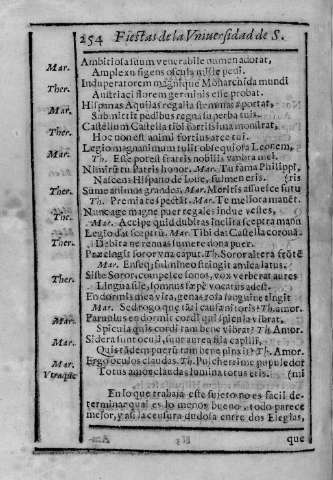 254 Fiestas de la Vniuersidad de S.
Mar. Ambitiosa suum venerabile numen adorat,
Amplexu figens oscula mille pedi.
Ther. Induperatorem magnique Monarchida mundi
Austriaci florem germinis esse probat.
Mar. Hispanas Aquilas regalia stemmata portat,
Submittit pedibus regna superba tuis.
Ther. Castellum Castella tibi fortissima monstrat,
Hoc nonest animi fortius arce tui.
Mar. Legio magnanimum tulit obsequiosa Leonem,
Th. Esse potest fratris nobilis vmbra mei.
Nimirũ tu Patris honor. Mar. Tu fama Philippi,
Nascens Hispano de Ioue, fulmen eris. (ris
Ther. Sume animos grandes, Mar. Meritis assuesce futu
Th. Premia te spectãt. Mar. Te meliora manẽt.
Ther. Nunc age magne puer regales indue vestes,
Mar. Accipe quid dubitas inclita sceptra manu
Ther. Legio dat sceptrum Mar. Tibi dat Castella coronã.
Debita ne renuas sumere dona puer.
soror vna caput. Th. Soror altera
Mar. Ense, stringit amica latus.
Ther. Siste Soror, compesce sonos, vox verberat aures
Lingua sile, somnus sæpè vocatus adest.
En dormis mea vita, genas rosa sanguine tingit
Mar. Sed rogo quæ sit causa nitoris? Th. amor.
Mar. Paruulus en dormit cordi qui spicula vibrat,
Spicula quis cordi tam bene vibrat? Th. Amor.
Mar. Sidera sunt oculi, sunt aurea fila capilli,
Quis tãdem puerũ tam bene pinxit? Th. Amor.
Mar. Ergo oculos claudas. Th. Pulcherrime pupule dor
Vtraque Totus amor claudas lumina totus eris. (mi
En lo que trabaja este sujeto no es facil de-
terminar qual es lo menos bueno, todo parece
mejor, y assi la censura dudosa entre dos Elegias,
que